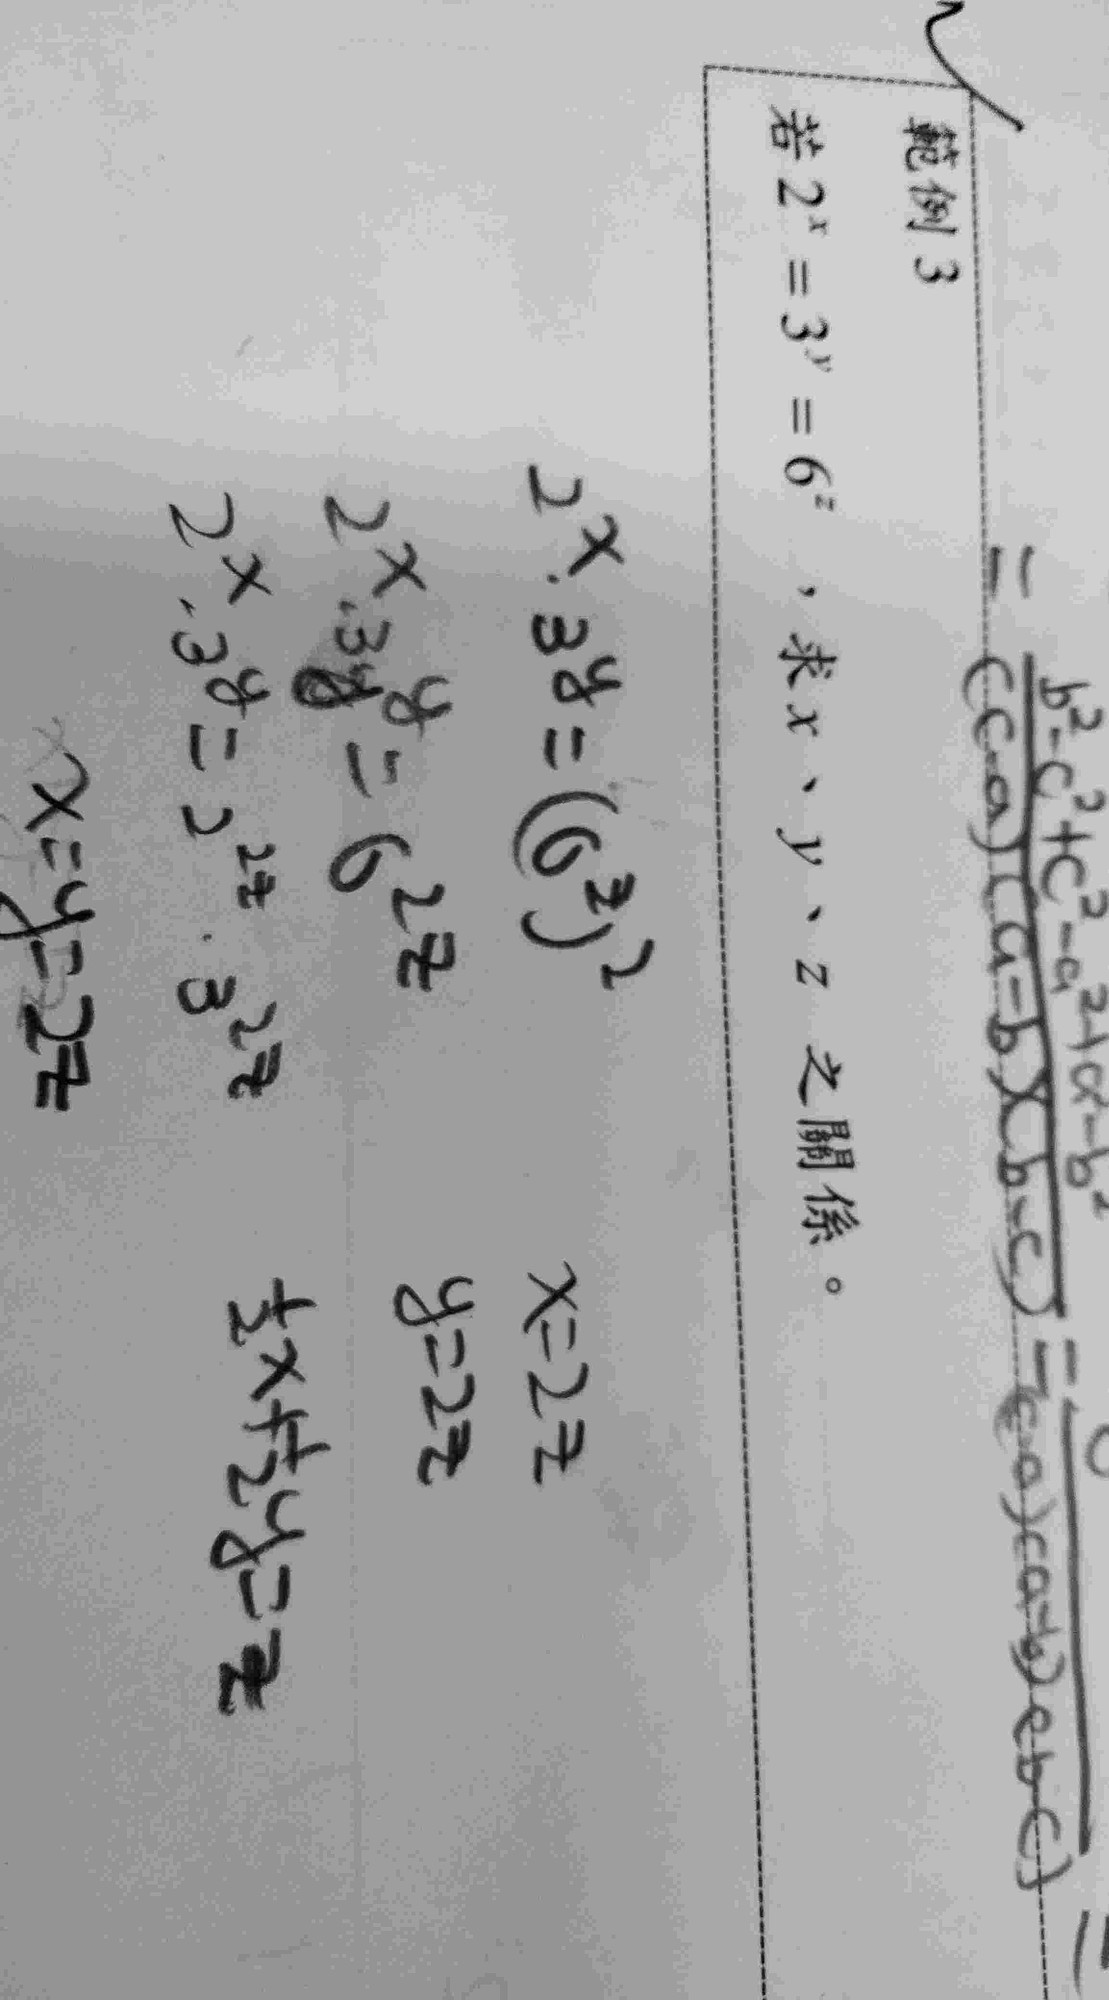 = b²-c²+c²-a²+a²-b² / (c-a)(a-b)(b-c) = 0 / (c-a)(a-b)(b-c) =
範例 3
若 2ˣ = 3ʸ = 6ᶻ ,求 x、y、z 之關係。
2ˣ·3ʸ = (6ᶻ)²
2ˣ·3ʸ = 6²ᶻ
2ˣ·3ʸ = 2²ᶻ·3²ᶻ
x=y=2z
x=2z
y=2z